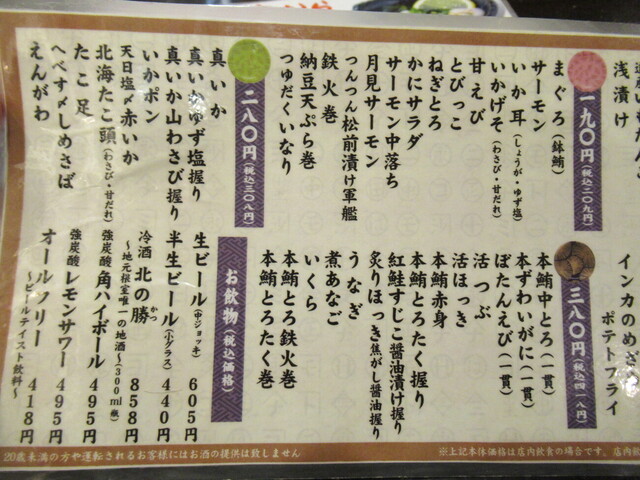 浅漬け
一九〇円(税込二〇九円)
まぐろ(鉢鮪)
サーモン
いか耳(しょうが・ゆず塩)
いかげそ(わさび・甘だれ)
甘えび
とびっこ
ねぎとろ
かにサラダ
サーモン中落ち
月見サーモン
つんつん松前漬け軍艦
鉄火巻
納豆天ぷら巻
つゆだくいなり
二八〇円(税込三〇八円)
真いか
真いかゆず塩握り
真いか山わさび握り
いかポン
天日塩〆赤いか
北海たこ頭(わさび・甘だれ)
たこ足
へべす〆しめさば
えんがわ
インカのめざ
ポテトフライ
三八〇円(税込四一八円)
本鮪中とろ(一貫)
本ずわいがに(一貫)
ぼたんえび(一貫)
活つぶ
活ほっき
本鮪赤身
本鮪とろたく握り
紅鮭すじこ醤油漬け握り
炙りほっき焦がし醤油握り
うなぎ
煮あなご
いくら
本鮪とろ鉄火巻
本鮪とろたく巻
お飲物(税込価格)
生ビール(中ジョッキ) 605円
半生ビール(小グラス) 440円
冷酒 北の勝(かつ) 858円
～地元根室唯一の地酒～(300ml瓶)
強炭酸 角ハイボール 495円
強炭酸 レモンサワー 495円
オールフリー 418円
～ビールテイスト飲料～
20歳未満の方や運転されるお客様にはお酒の提供は致しません
※上記本体価格は店内飲食の場合です。店内飲